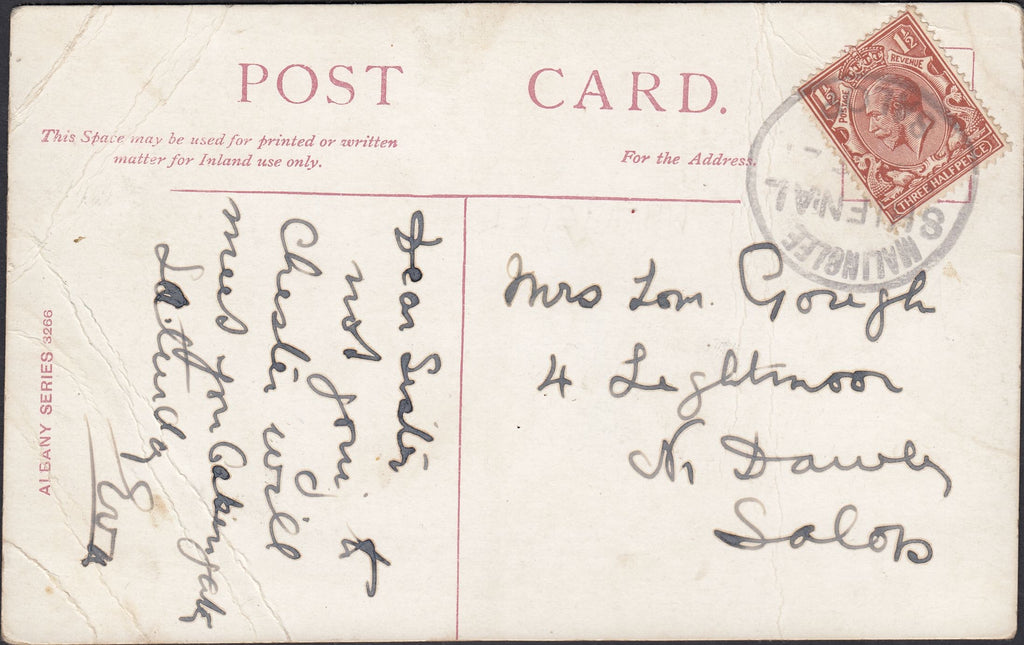 POST CARD.
This Space may be used for printed or written
matter for Inland use only.
For the Address.
REVENUE
POSTAGE
1½
1½
THREE HALFPENCE
MALINSLEE
ALBANY SERIES 3266
Dear Sister
not going to
Chester will
meet you Oakengates
Saturday
Eva
Mrs Tom. Gough
4 Lightmoor
Nr Dawley
Salop